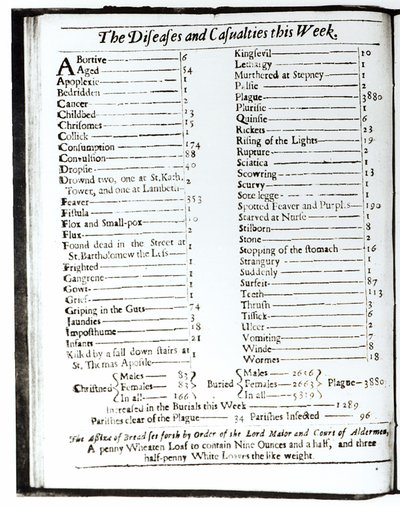 The Diseases and Casualties this Week.
Abortive 6
Aged 54
Apoplexie 1
Bedridden 1
Cancer 2
Childbed 23
Chrisomes 15
Collick 1
Consumption 174
Convulsion 88
Dropsie 40
Drownd two, one at St. Kath.
Tower, and one at Lambeth 2
Feaver 353
Fistula 1
Flox and Small-pox 10
Flux 2
Found dead in the Street at
St. Bartholomew the Less 1
Frighted 1
Gangrene 1
Gowt 1
Grief 1
Griping in the Guts 74
Jaundies 3
Imposthume 18
Infants 21
Kill'd by a fall down stairs at
St. Thomas Apostle 1
Kingsevil 10
Lethargy 1
Murthered at Stepney 1
Palsie 2
Plague 3880
Plurisie 1
Quinsie 6
Rickets 23
Rising of the Lights 19
Rupture 2
Sciatica 1
Scowring 13
Scurvy 1
Sore legge 1
Spotted Feaver and Purples 190
Starved at Nurse 1
Stilborn 8
Stone 2
Stopping of the stomach 16
Strangury 1
Suddenly 1
Surfeit 87
Teeth 113
Thrush 3
Tissick 6
Ulcer 2
Vomiting 7
Winde 8
Wormes 18
Christned Males 83 Females 83 In all 166
Buried Males 2656 Females 2663 In all 5319 Plague 3880
Increased in the Burials this Week 1289
Parishes clear of the Plague 34 Parishes Infected 96
The Assize of Bread set forth by Order of the Lord Maior and Court of Aldermen,
A penny Wheaten Loaf to contain Nine Ounces and a half, and three
half-penny White Loaves the like weight.